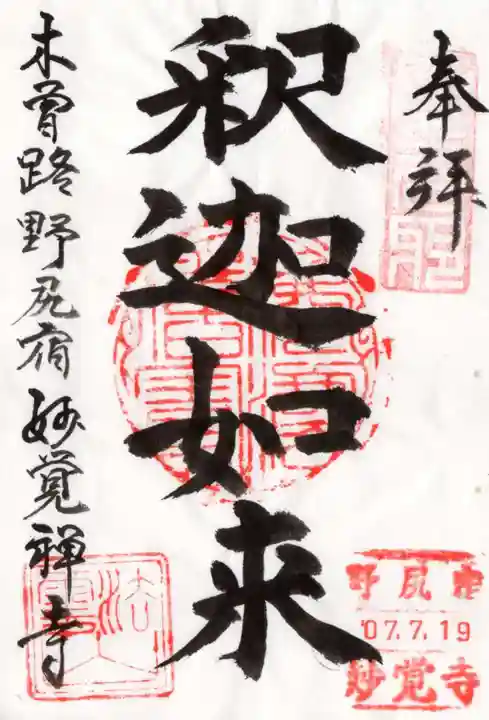 奉拝
釈迦如来
木曽路野尻宿妙覚禅寺
野尻宿
'07.7.19
妙覚寺